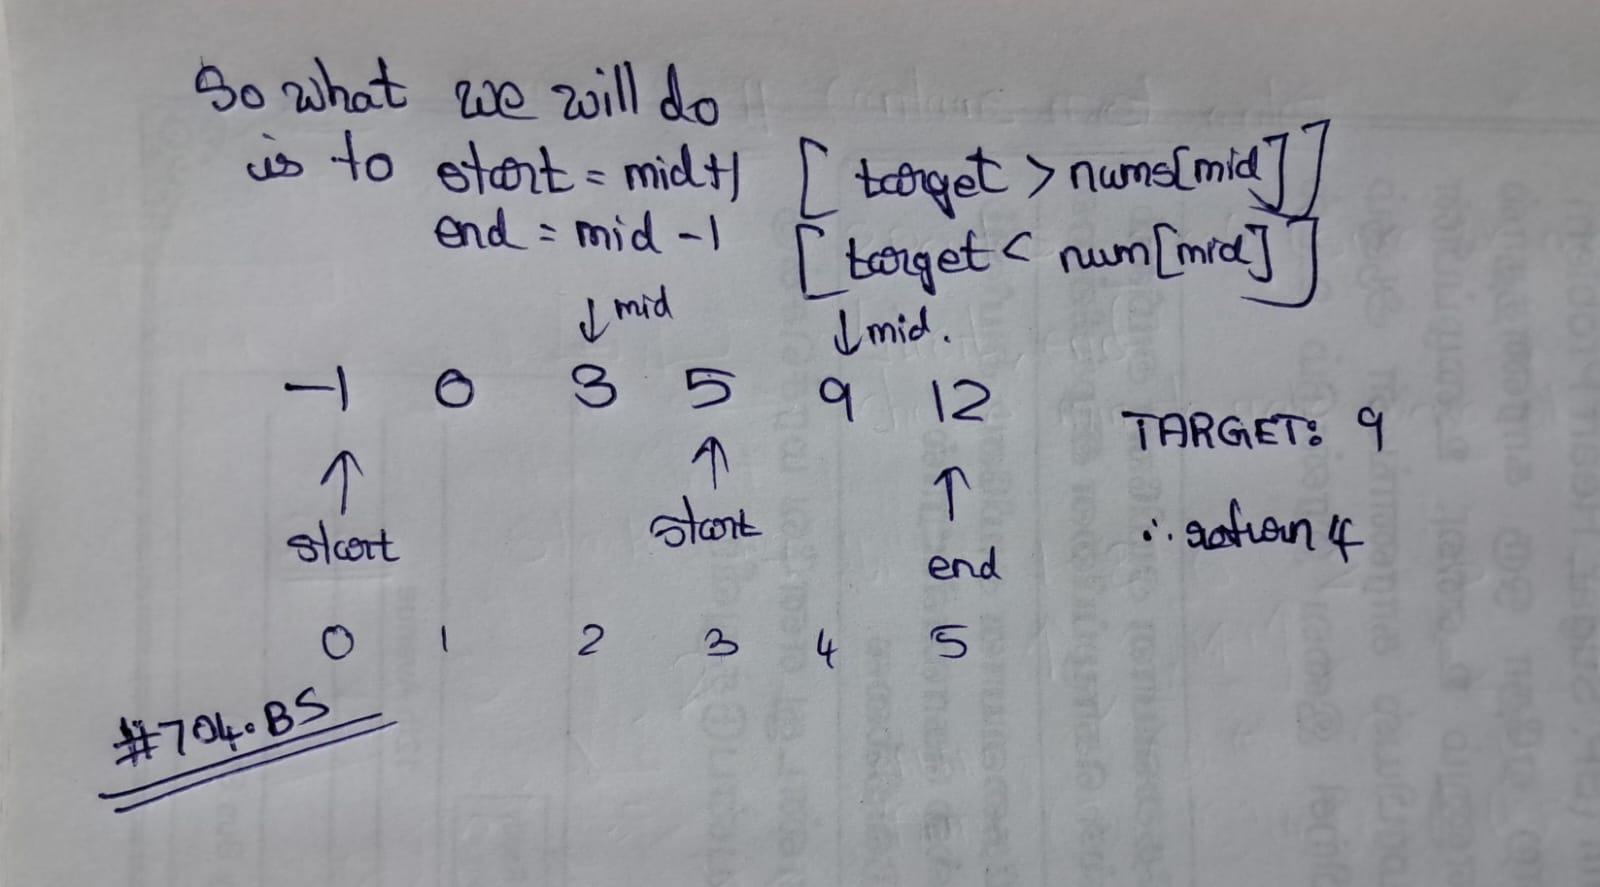 So what we will do
is to start = mid+1 [target > nums[mid]]
end = mid - 1 [target < num[mid]]
↓mid ↓mid.
-1 0 3 5 9 12
TARGET: 9
↑ ↑ ↑
start start end
∴ return 4
0 1 2 3 4 5
#704.BS